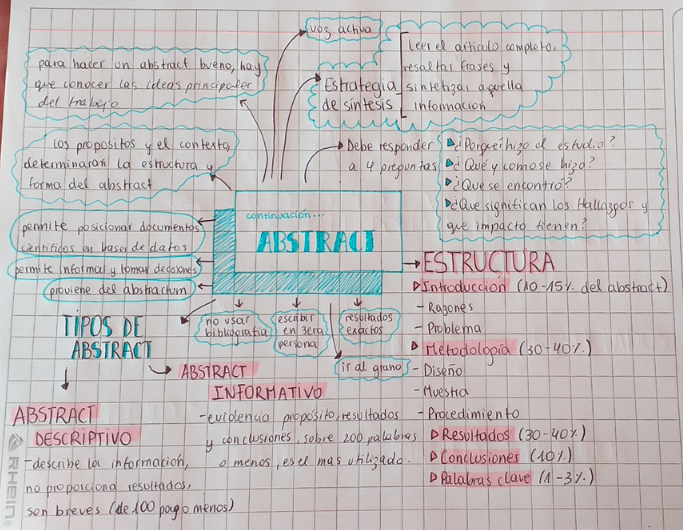 voz activa
para hacer un abstract bueno, hay
que conocer las ideas principales
del trabajo
Estrategia
de síntesis
leer el artículo completo,
resaltar frases y
sintetizar aquella
información
los propositos y el contexto,
determinaran la estructura y
forma del abstract
Debe responder
a 4 preguntas
¿Porqué hizo el estudio?
¿Qué y como se hizo?
¿Que se encontró?
¿Que significan los Hallazgos y
que impacto tienen?
continuación...
ABSTRACT
permite posicionar documentos
científicos en bases de datos
permite informal y tomar decisiones
proviene del abstractum
no usar
bibliografía
escribir
en 3era
persona
resultados
exactos
ir al grano
ESTRUCTURA
Introducción (10-15% del abstract)
- Razones
- Problema
Metodología (30-40%)
- Diseño
- Muestra
- Procedimiento
Resultados (30-40%)
Conclusiones (10%)
Palabras clave (1-3%)
TIPOS DE
ABSTRACT
ABSTRACT
INFORMATIVO
- evidencia propósito, resultados
y conclusiones, sobre 200 palabras
o menos, es el mas utilizado.
ABSTRACT
DESCRIPTIVO
- describe la información,
no proporciona resultados,
son breves (de 100 pag o menos)
RHEIN